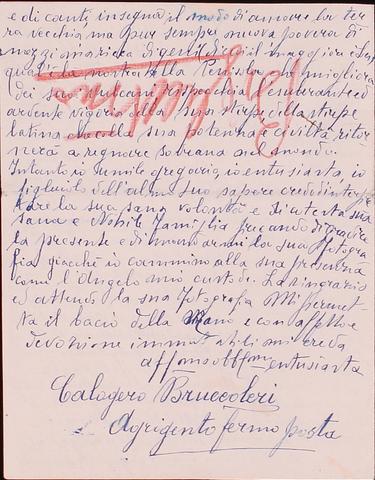 e di canti, insegna il modo di amare la ter
ra vecchia ma pur sempre nuova povera di
mezzi ma ricca di gentilezza il maggiore
quale la nostra Alla Penisola che migliora
dei suoi l'esuberante ed
ardente vigoria della sua stirpe della stirpe
latina la sua potenza e civiltà ritor
nerà a regnare sobrana nel mondo.
Intanto io umile gregario, io entusiasta, io
figliuolo dell'almo suo sapere credo
la sua sana volontà e di
sana e Nobile famiglia pregando di gradire
la presente e di mandarmi la sua fotogra
fia giacchè io cammino alla sua presenza
come l'Angelo mio custode. La ringrazio
ed attendo la sua fotografia. Mi permet-
ta il bacio della Mano e con affetto e
devozione immutabili mi creda
entusiasta
Calogero Bruccoleri
Agrigento fermo posta